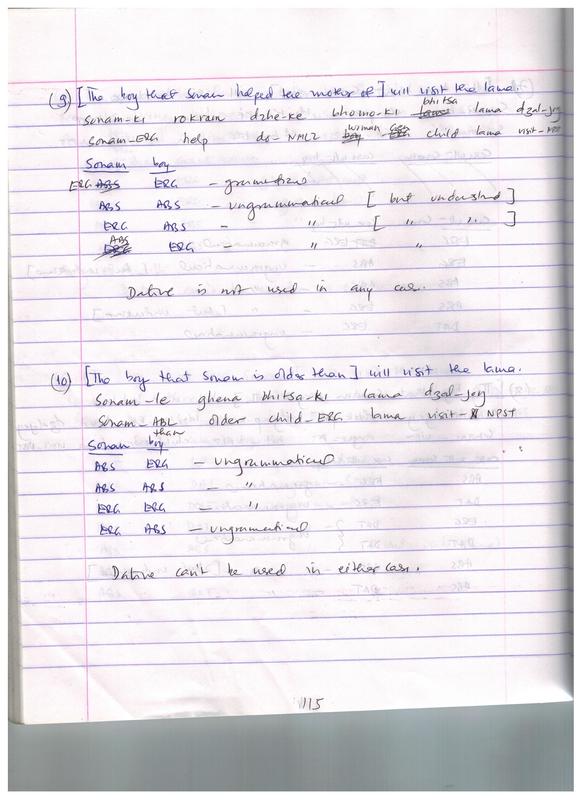 (9) [The boy that Sonam helped the mother of] will visit the lama.
Sonam-ki rokram dzhe-ke bhomo-ki bhitsa lama dzal-jeŋ
Sonam-ERG help do-NMLZ woman GEN child lama visit-NPST
Sonam boy
ERG ABS ERG - grammatical
ABS ABS - ungrammatical [but understood]
ERG ABS - " [ " " ]
ABS ERG ERG - " "
Dative is not used in any case.
(10) [The boy that Sonam is older than] will visit the lama.
Sonam-le ghena bhitsa-ki lama dzal-jeŋ
Sonam-ABL older child-ERG lama visit-NPST
than
Sonam boy
ABS ERG - ungrammatical
ABS ABS - "
ERG ERG - "
ERG ABS - ungrammatical
Dative can't be used in either case.
115